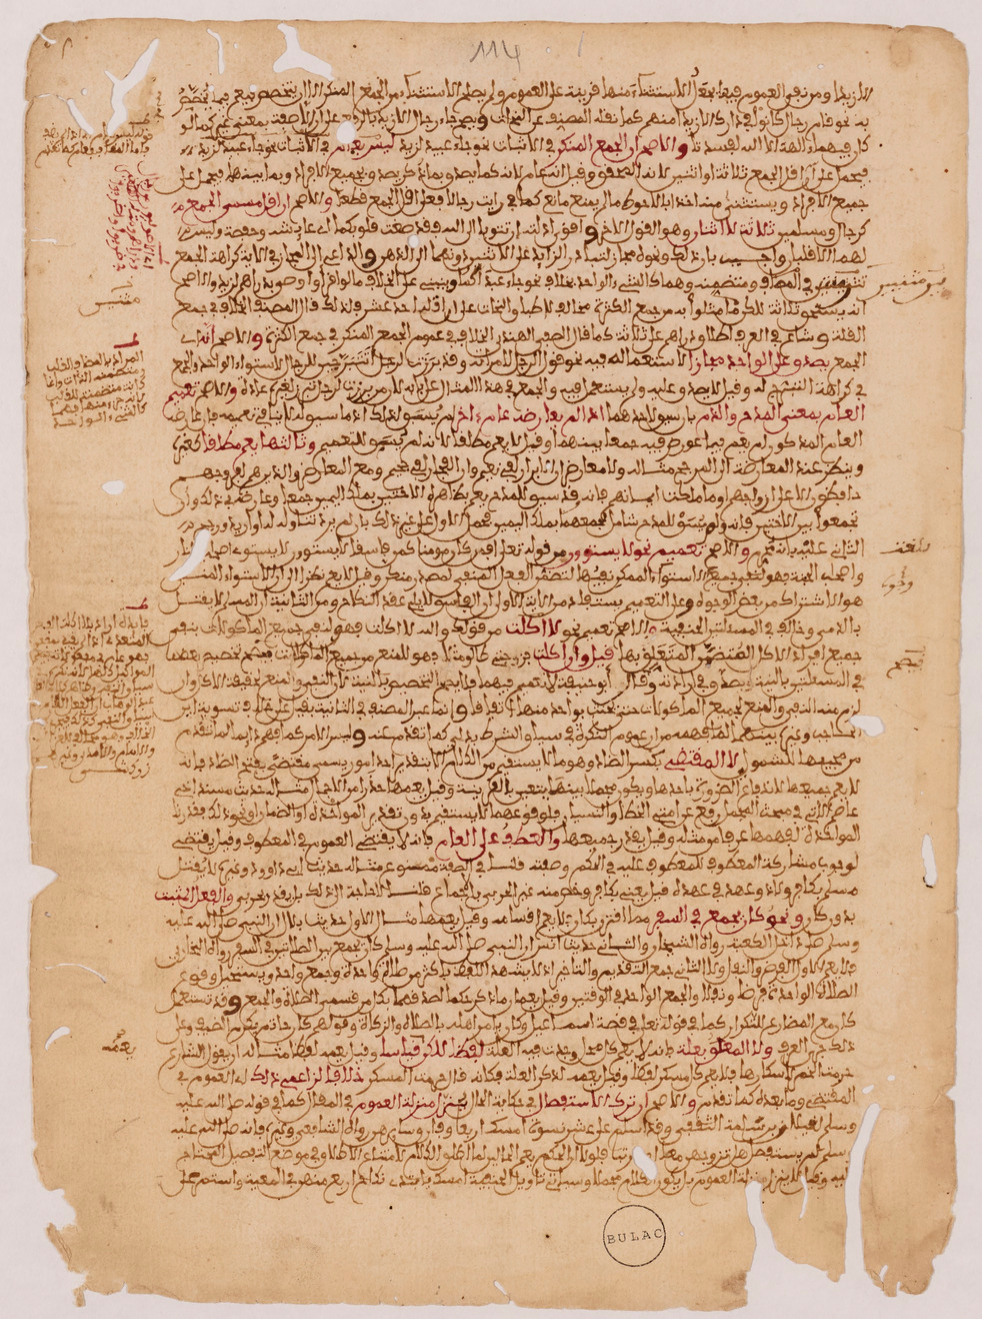 إلا زيدا ومن نفى العموم فيها يجعل الاستثناء منها قرينة على العموم ولم يصح الاستثناء من الجمع المنكر إلا إن تخصص فيعم فيما يتخصص
به نحو قام رجال كانوا في دارك إلا زيدا منهم كما نقله المصنف عن النحاة ويصح جاء رجال إلا زيد بالرفع على أن إلا صفة بمعنى غير كما في لو
كان فيهما ءالهة إلا الله لفسدتا والأصح أن الجمع المنكر في الإثبات نحو جاء عبيد لزيد ليس بعام
فيحمل على أقل الجمع ثلاثة أو اثنين لأنه المحقق وقيل إنه عام لأنه كما يصدق بما ذكر يصدق بجميع الأفراد وبما بينهما فيحمل على
جميع الأفراد ويستثنى منه أخذا بالأحوط ما لم يمنع مانع كما في رأيت رجالا فعلى أقل الجمع قطعا والأصح أن أقل مسمى الجمع
كرجال ومسلمين ثلاثة لا اثنان وهو القول الآخر وأقوى أدلته إن تتوبا إلى الله فقد صغت قلوبكما أي عائشة وحفصة وليس
لهما إلا قلبان وأجيب بأن ذلك ونحوه مجاز لتبادر الزائد على الاثنين دونهما إلى الذهن والداعي إلى المجاز في الآية كراهة الجمع
تثنيتين في المضاف ومتضمنه وهما كالشيء الواحد بخلاف نحو جاء عبداكما وينبني على الخلاف ما لو أقر أو أوصى بدراهم لزيد والأصح
أنه يستحق ثلاثة لكن ما مثلوا به من جمع الكثرة مخالف لإطباق النحاة على أن أقله أحد عشر فلذلك قال المصنف الخلاف في جمع
القلة وشاع في العرف إطلاق دراهم على ثلاثة كما قال الصفي الهندي الخلاف في عموم الجمع المنكر في جمع الكثرة والأصح أنه أي
الجمع يصدق على الواحد مجازا لاستعماله فيه نحو قول الرجل لامرأته وقد برزت لرجل أتتبرجين للرجال لاستواء الواحد والجمع
في كراهة التبرج له وقيل لا يصدق عليه ولم يستعمل فيه والجمع في هذا المثال على بابه لأن من برزت لرجل تبرز لغيره عادة والأصح تعميم
العام بمعنى المدح والذم بأن سيق لأحدهما إذا لم يعارضه عام ءاخر لم يسق لذلك إذ ما سيق له لا ينافي تعميمه فإن عارضه
العام المذكور لم يعم فيما عورض فيه جمعا بينهما وقيل لا يعم مطلقا لأنه لم يسق للتعميم وثالثها يعم مطلقا كغيره
وينظر عند المعارضة إلى المرجح مثاله ولا معارض إن الأبرار لفي نعيم وإن الفجار لفي جحيم ومع المعارض والذين هم لفروجهم
حافظون إلا على أزواجهم أو ما ملكت أيمانهم فإنه وقد سيق للمدح يعم بظاهره الأختين بملك اليمين جمعا وعارضه في ذلك وأن
تجمعوا بين الأختين فإنه ولم يسق للمدح شامل لجمعهما بملك اليمين فحمل الأول على غير ذلك بأن لم يرد تناوله له أو أريد ورجح
الثاني عليه بأنه محرم والأصح تعميم نحو لا يستوون من قوله تعلى أفمن كان مومنا كمن كان فاسقا لا يستوون لا يستوي أصحاب النار
وأصحاب الجنة فهو لنفي جميع الاستواء الممكن نفيها لتضمن الفعل المنفي لمصدر منكر وقيل لا يعم نظرا إلى أن الاستواء المنفي
هو الاشتراك من بعض الوجوه وعلى التعميم يستفاد من الآية الأولى أن الفاسق لا يلي عقد النكاح ومن الثانية أن المسلم لا يقتل
بالذمي وخالف في المسئلتين الحنفية والأصح تعميم نحو لا أكلت من قولك والله لا أكلت فهو لنفي جميع المأكولات بنفي
جميع أفراد الأكل المتضمن المتعلق بها قيل وإن أكلت فزوجتي طالق مثلا فهو للمنع من جميع المأكولات فيصح تخصيص بعضها
في المسئلتين بالنية ويصدق في إرادته وقال أبو حنيفة لا تعميم فيهما فلا يصح التخصيص بالنية لأن النفي والمنع لحقيقة الأكل وإن
لزم منه النفي والمنع لجميع المأكولات حتى يحنث بواحد منها اتفاقا وإنما عبر المصنف في الثانية بقيل على خلاف تسوية ابن
الحاجب وغيره بينهما لما فهمه من أن عموم النكرة في سياق الشرط بدلي كما تقدم عنه وليس الأمر كما فهم دائما لما تقدم
من مجيئها للشمول لا المقتضي بكسر الضاد وهو ما لا يستقيم من الكلام إلا بتقدير أحد أمور يسمى مقتضى بفتح الضاد فإنه
لا يعم جميعها لاندفاع الضرورة بأحدها ويكون مجملا بينها يتعين بالقرينة وقيل يعمها حذرا من الإجمال مثاله حديث مسند أخي
عاصم الآتي في مبحث المجمل رفع عن أمتي الخطأ والنسيان فلوقوعهما لا يستقيم بدون تقدير المؤاخذة أو الضمان أو نحو ذلك فقدرنا
المؤاخذة لفهمها عرفا من مثله وقيل يقدر جميعها والعطف على العام فإنه لا يقتضي العموم في المعطوف وقيل يقتضي
لوجوب مشاركة المعطوف للمعطوف عليه في الحكم وصفته قلنا في الصفة ممنوع مثاله حديث أبي داوود وغيره لا يقتل
مسلم بكافر ولا ذو عهد في عهده قيل يعني بكافر وخص منه غير الحربي بالإجماع قلنا لا حاجة إلى ذلك بل يقدر بحربي والفعل المثبت
بدون كان ونحو كان يجمع في السفر مما اقترن بكان فلا يعم أقسامه وقيل يعمها مثال الأول حديث بلال أن النبي صلى الله عليه
وسلم صلى داخل الكعبة رواه الشيخان والثاني حديث أنس أن النبي صلى الله عليه وسلم كان يجمع بين الصلاتين في السفر رواه البخاري
فلا يعم الأول الفرض والنفل ولا الثاني جمع التقديم والتأخير إذ لا يشهد اللفظ بأكثر من صلاة واحدة وجمع واحد ويستحيل وقوع
الصلاة الواحدة فرضا ونفلا والجمع الواحد في الوقتين وقيل يعمان ما ذكر حكما لصدقهما بكل من قسمي الصلاة والجمع وقد تستعمل
كان مع المضارع للتكرار كما في قوله تعلى في قصة اسماعيل وكان يامر أهله بالصلاة والزكاة وقولهم كان حاتم يكرم الضيف وعلى
ذلك جرى العرف ولا المعلق بعلة فإنه لا يعم كل محل وجدت فيه العلة لفظا لكن قياسا وقيل يعمه لفظا مثاله أن يقول الشارع
حرمت الخمر لإسكارها فلا يعم كل مسكر لفظا وقيل يعمه لذكر العلة فكأنه قال حرمت المسكر خلافا لزاعمي ذلك أي العموم في
المقتضي وما بعده كما تقدم والأصح أن ترك الاستفصال في حكاية الحال ينزل منزلة العموم في المقال كما في قوله صلى الله عليه
وسلم لغيلان بن سلمة الثقفي وقد أسلم على عشر نسوة أمسك أربعا وفارق سائرهن رواه الشافعي وغيره فإنه صلى الله عليه
وسلم لم يستفصل هل تزوجهن معا أو مرتبا فلولا أن الحكم يعم الحالين لما أطلق الكلام لامتناع الإطلاق في موضع التفصيل المحتاج
إليه وقيل لا ينزل منزلة العموم بل يكون الكلام مجملا وسيأتي تأويل الحنفية أمسك بابتدئ نكاح أربع منهن في المعية واستمر على
BULAC